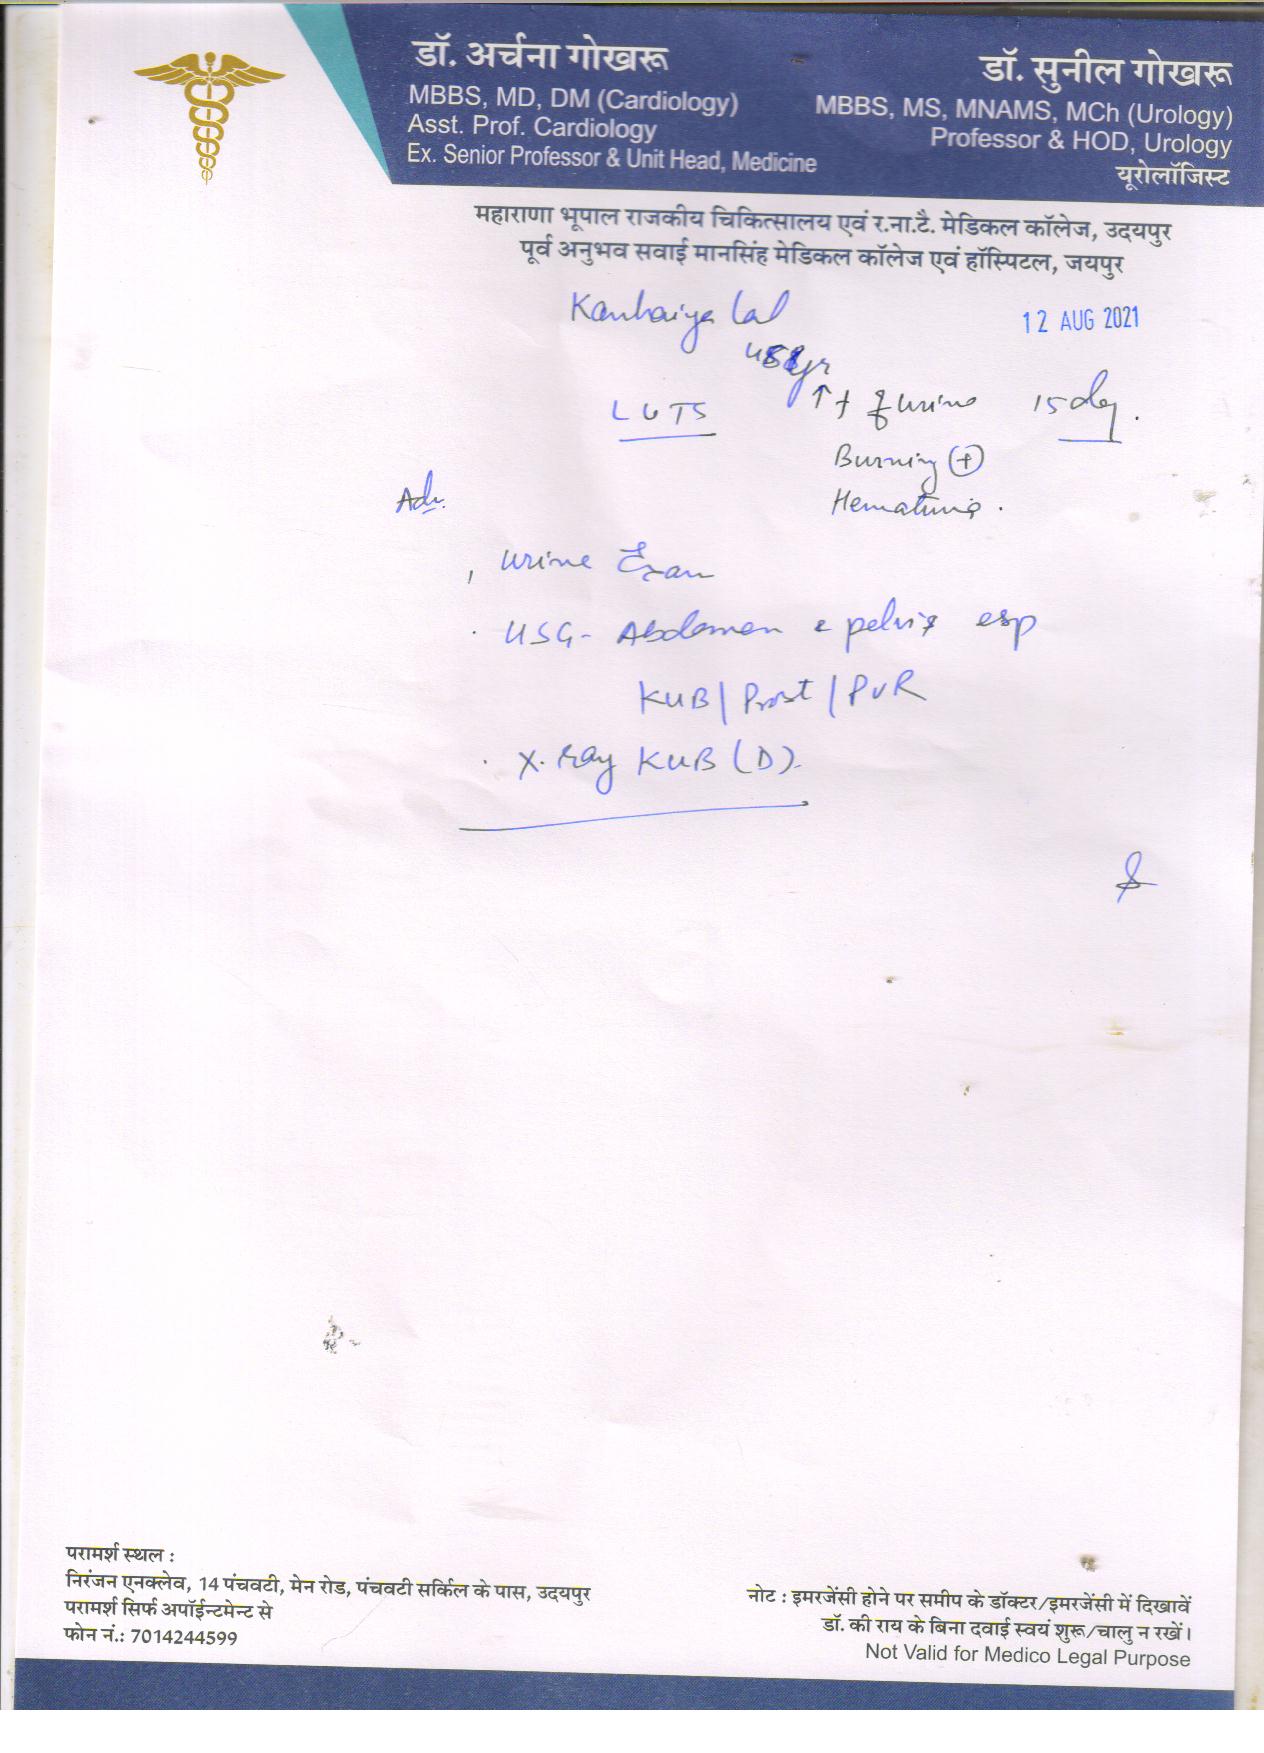 डॉ. अर्चना गोखरू
MBBS, MD, DM (Cardiology)
Asst. Prof. Cardiology
Ex. Senior Professor & Unit Head, Medicine
डॉ. सुनील गोखरू
MBBS, MS, MNAMS, MCh (Urology)
Professor & HOD, Urology
यूरोलॉजिस्ट
महाराणा भूपाल राजकीय चिकित्सालय एवं र.ना.टै. मेडिकल कॉलेज, उदयपुर
पूर्व अनुभव सवाई मानसिंह मेडिकल कॉलेज एवं हॉस्पिटल, जयपुर
Kanhaiya Lal
12 AUG 2021
yr
LUTS ↑ f of urine 15 day.
Burning (+)
Hematuria.
Adv.
Urine Exam
USG- Abdomen & pelvis esp
KUB/Prost/PVR
X-ray KUB (D).
परामर्श स्थल :
निरंजन एनक्लेव, 14 पंचवटी, मेन रोड, पंचवटी सर्किल के पास, उदयपुर
परामर्श सिर्फ अपॉईन्टमेन्ट से
फोन नं.: 7014244599
नोट : इमरजेंसी होने पर समीप के डॉक्टर/इमरजेंसी में दिखावें
डॉ. की राय के बिना दवाई स्वयं शुरू/चालु न रखें।
Not Valid for Medico Legal Purpose